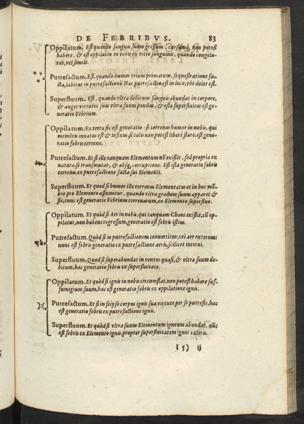 DE FEBRIBVS. 83
Oppilatum. Est quando sanguis suum gressum, cursumq́; non potest
habere, & est oppilatio in venis ex vitio sanguinis, quando congela-
tur, vel simile.
Putrefactum. Est, quando humor trium primarum, sequestratione fa-
cta, labitur in putrefactionem: Haec putrefactio est in loco, vbi dolor est.
Superfluum. Est, quando vltra debitum sanguis abundat in corpore,
& auget virtutes suas vltra suum pondus, & ista superfluitas est ge-
neratio Febrium.
Oppilatum. Ex terra sic est generatio: si terreus humor in nobis, qui
membris innatus est & insitus, si talis non potest liberè stare, est gene-
ratio febris terreae.
Putrefactum. Et si ille tanquam Elementum nõ existit, sed propria ex
natura se transmutat, & aliò, corrupens est. Est ista generatio febris
terreae, ex putrefactione facta sui Elementi.
Superfluum. Et quòd si humor ille terreus Elementatus et in hoc mẽ-
bro pro Elemento assumetur, quando vltra gradum suum apparet &
sic, tunc est generatio Febris terrearum, ex Elemento superfluo.
Oppilatum. Et quòd si aër in nobis, qui tanquam Chaos existit, est op-
pilatus, non habens regressum, est generatio febris ibi.
Putrefactum. Quòd si in putrefactionem conuertitur, vti aër externus:
nunc est febris generatio ex putrefactione aëris, scilicet interni.
Superfluum. Quòd si superabundat in ventus quasi, & vltra suum de-
bitum, haec generatio febris ex superfluitate.
Oppilatum. Et quòd si ignis in nobis circumstat, non potest habere suf-
fumigium suum, haec est generatio febris ex oppilatione ignis.
Putrefactum. Et si in seipso corpus ignis sua virtute per se putrescit, haec
est generatio febris ex putrefactione ignis.
Superfluum. Et quòd si vltra suum Elementum igneum abundat, nũc
est febris ex Elemento ignis, propter superfluitatem ignei caloris.
ij